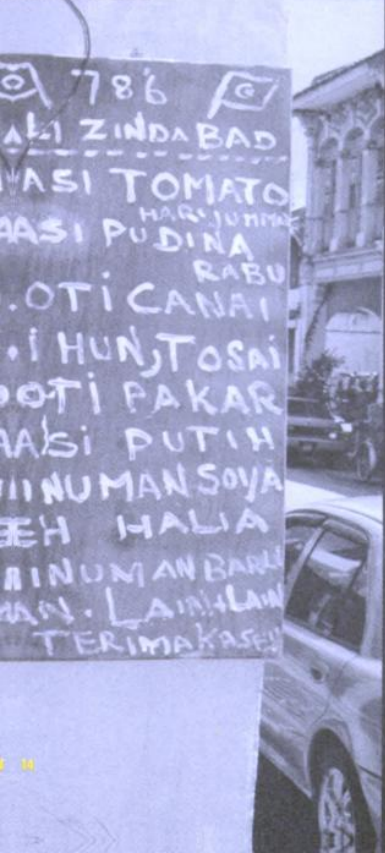 786
ALI ZINDABAD
NASI TOMATO
HARI JUMMAT
NASI PUDINA
RABU
ROTI CANAI
MIHUN, TOSAI
ROTI BAKAR
NASI PUTIH
MINUMAN SOYA
TEH HALIA
MINUMAN BARU
LAIN-LAIN
TERIMAKASEH
14